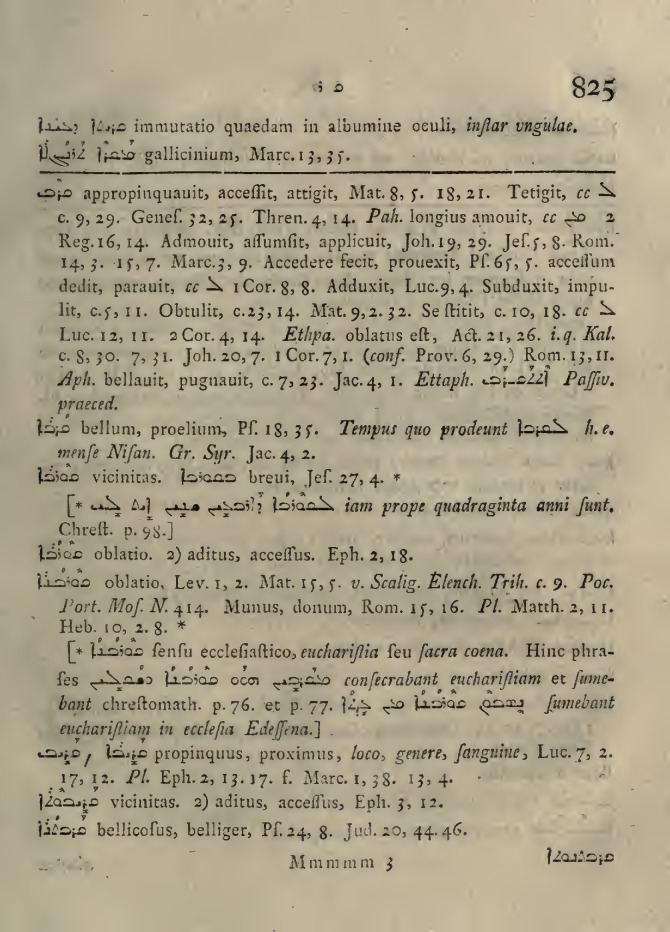 ܩ ܪ 825
ܩܪܢܐ ܕܥܝܢܐ immutatio quaedam in albumine oculi, inſtar vngulae.
ܩܪܝܬ ܬܪܢܓܠܐ gallicinium, Marc. 13, 35.
ܩܪܒ appropinquauit, acceſſit, attigit, Mat. 8, 5. 18, 21. Tetigit, cc ܠ
c. 9, 29. Geneſ. 32, 25. Thren. 4, 14. Pah. longius amouit, cc ܡܢ 2
Reg. 16, 14. Admouit, aſſumſit, applicuit, Joh. 19, 29. Jeſ. 5, 8. Rom.
14, 3. 15, 7. Marc. 3, 9. Accedere fecit, prouexit, Pſ. 65, 5. acceſſum
dedit, parauit, cc ܠ 1 Cor. 8, 8. Adduxit, Luc. 9, 4. Subduxit, impu-
lit, c. 5, 11. Obtulit, c. 23, 14. Mat. 9, 2. 32. Se ſtitit, c. 10, 18. cc ܠ
Luc. 12, 11. 2 Cor. 4, 14. Ethpa. oblatus eſt, Act. 21, 26. i. q. Kal.
c. 8, 30. 7, 31. Joh. 20, 7. 1 Cor. 7, 1. (conf. Prov. 6, 29.) Rom. 13, 11.
Aph. bellauit, pugnauit, c. 7, 23. Jac. 4, 1. Ettaph. ܐܬܬܩܪܒ Paſſiv.
praeced.
ܩܪܒܐ bellum, proelium, Pſ. 18, 35. Tempus quo prodeunt ܠܩܪܒܐ h. e.
menſe Niſan. Gr. Syr. Jac. 4, 2.
ܩܘܪܒܐ vicinitas. ܒܩܘܪܒܐ breui, Jeſ. 27, 4. *
[* ܠܩܘܪܒܐ ܕܐܪܒܥܝܢ ܫܢܝܢ iam prope quadraginta anni ſunt.
Chreſt. p. 98.]
ܩܘܪܒܐ oblatio. 2) aditus, acceſſus. Eph. 2, 18.
ܩܘܪܒܢܐ oblatio, Lev. 1, 2. Mat. 15, 5. v. Scalig. Elench. Trih. c. 9. Poc.
Port. Moſ. N. 414. Munus, donum, Rom. 15, 16. Pl. Matth. 2, 11.
Heb. 10, 2. 8. *
[* ܩܘܪܒܢܐ ſenſu eccleſiaſtico, euchariſtia ſeu ſacra coena. Hinc phra-
ſes ܡܩܪܒܝܢ ܗܘܘ ܩܘܪܒܢܐ ܘܢܣܒܝܢ conſecrabant euchariſtiam et ſume-
bant chreſtomath. p. 76. et p. 77. ܢܣܒܘ ܩܘܪܒܢܐ ܡܢ ܥܕܬܐ ſumebant
euchariſtiam in eccleſia Edeſſena.]
ܩܪܝܒ, ܩܪܝܒܐ propinquus, proximus, loco, genere, ſanguine, Luc. 7, 2.
17, 12. Pl. Eph. 2, 13. 17. f. Marc. 1, 38. 13, 4.
ܩܪܝܒܘܬܐ vicinitas. 2) aditus, acceſſus, Eph. 3, 12.
ܩܪܒܬܢܐ bellicoſus, belliger, Pſ. 24, 8. Jud. 20, 44. 46.
Mmmmm 3 ܩܪܒܬܢܘܬܐ